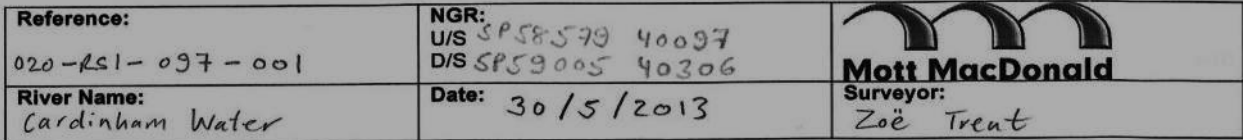 Reference:
020-RS1-097-001
NGR:
U/S SP58579 40097
D/S SP59005 40306
Mott MacDonald
River Name:
Cardinham Water
Date: 30/5/2013
Surveyor:
Zoë Trent